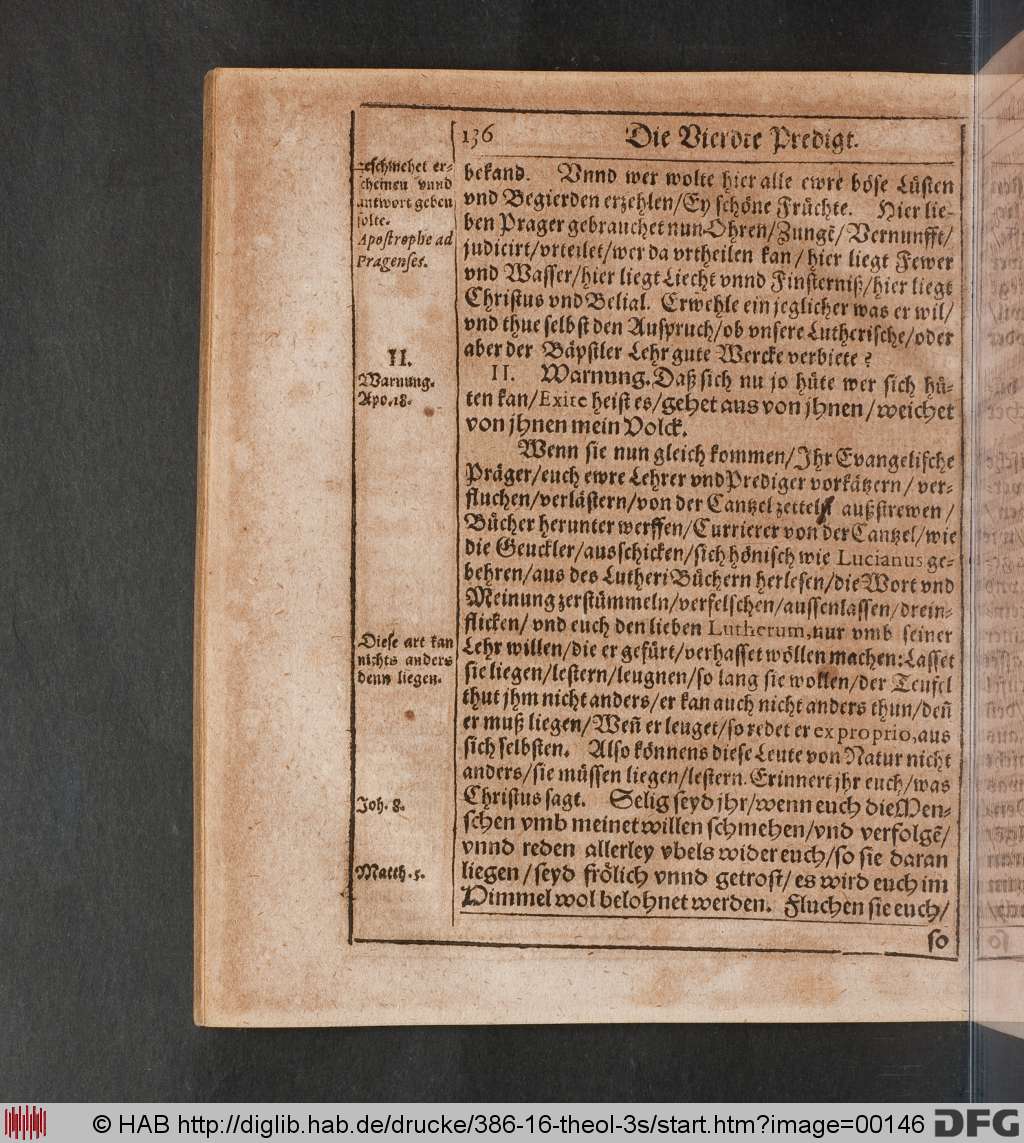 136 Die Vierdte Predigt.
geschmehet er-
scheinen vnnd
antwort geben
solte.
Apostrophe ad
Pragenses.
II.
Warnung.
Apo. 18.
Diese art kan
nichts anders
denn liegen.
Joh. 8.
Matth. 5.
bekand. Vnnd wer wolte hier alle ewre böse Lüsten
vnd Begierden erzehlen/Ey schöne Früchte. Hier lie-
ben Prager gebrauchet nun Ohreñ/Zungẽ/Vernunfft/
judicirt/vrteilet/wer da vrtheilen kan/hier liegt Fewer
vnd Wasser/hier liegt Liecht vnnd Finsterniß/hier liegt
Christus vnd Belial. Erwehle ein jeglicher was er wil/
vnd thue selbst den Außpruch/ob vnsere Lutherische/oder
aber der Bäpstler Lehr gute Wercke verbiete?
II. Warnung. Daß sich nu jo hüte wer sich hü-
ten kan/Exite heist es/gehet aus von jhnen/weichet
von jhnen mein Volck.
Wenn sie nun gleich kommen/Jhr Evangelische
Präger/euch ewre Lehrer vnd Prediger vorkätzern/ver-
fluchen/verlästern/von der Cantzel zetteln außstrewen/
Bücher herunter werffen/Currierer von der Cantzel/wie
die Geuckler/ausschicken/sich hönisch wie Lucianus ge-
behren/aus des Lutheri Büchern herlesen/die Wort vnd
Meinung zerstümmeln/verfelschen/aussenlassen/drein-
flicken/vnd euch den lieben Lutherum, nur vmb seiner
Lehr willen/die er gefürt/verhasset wöllen machen: Lasset
sie liegen/lestern/leugnen/so lang sie wollen/der Teufel
thut jhm nicht anders/er kan auch nicht anders thun/deñ
er muß liegen/Weñ er leuget/so redet er ex proprio, aus
sich selbsten. Also können s diese Leute von Natur nicht
anders/sie müssen liegen/lestern. Erinnert jhr euch/was
Christus sagt. Selig seyd jhr/wenn euch die Men-
schen vmb meinet willen schmehen/vnd verfolgẽ/
vnnd reden allerley vbels wider euch/so sie daran
liegen/seyd frölich vnnd getrost/es wird euch im
Himmel wol belohnet werden. Fluchen sie euch/
so
© HAB http://diglib.hab.de/drucke/386-16-theol-3s/start.htm?image=00146
DFG